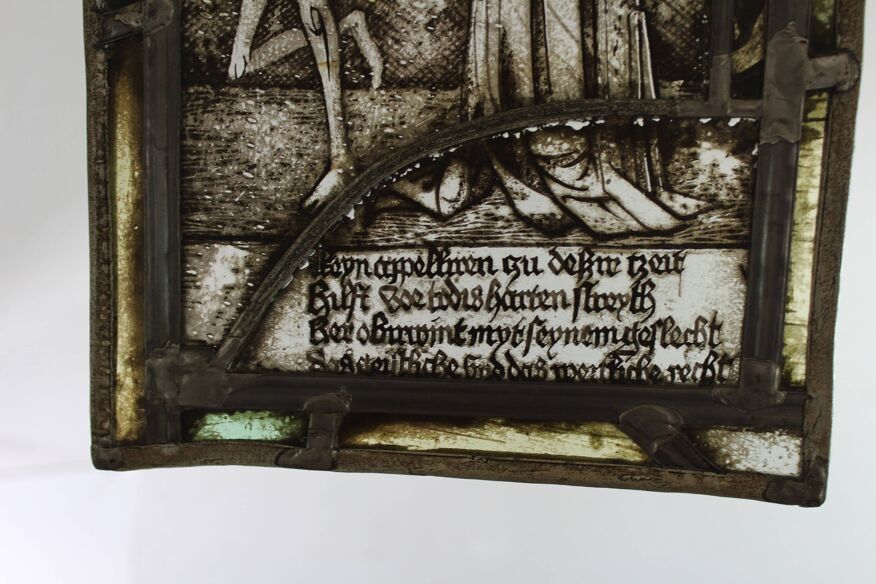 keyn appelliren zu deßir tzeit
Hilft Vor todis harten streyth
Der obirwint myt seynem geslecht
das geistliche vnd das wertliche recht